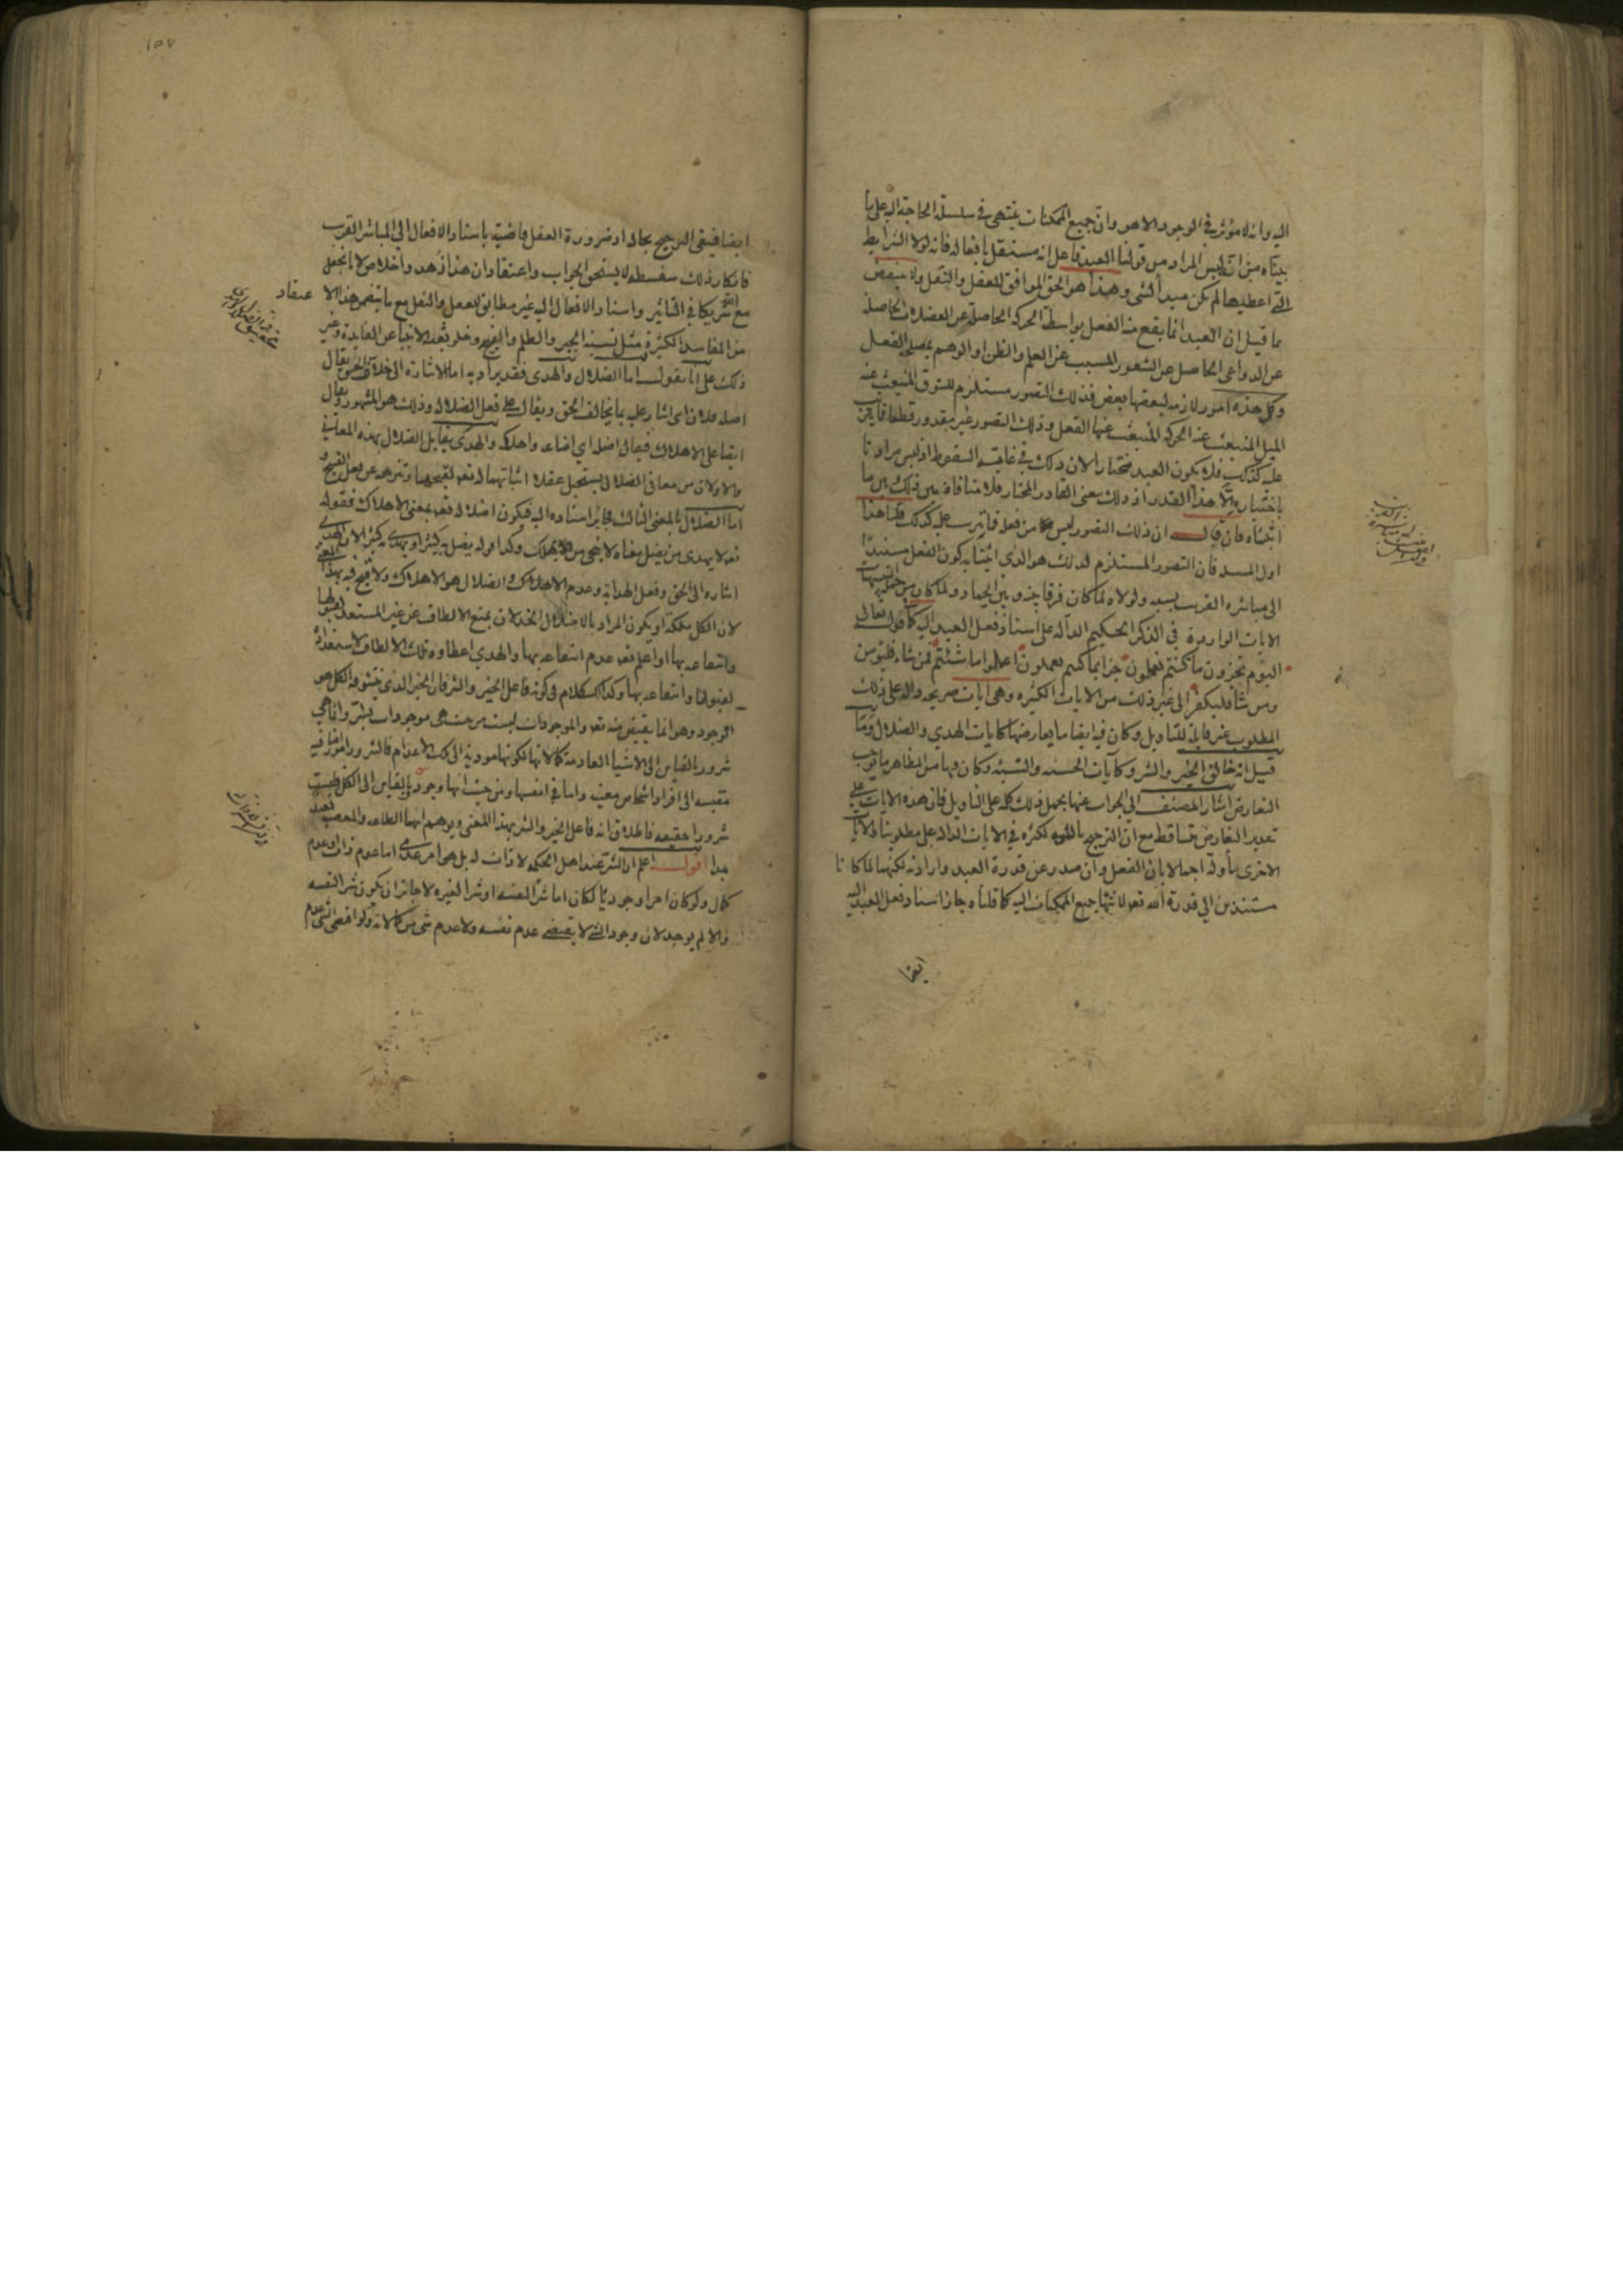 اليه وانه لا مؤثر في الوجود الا هو وان جميع الممكنات ينتهي في سلسلة الحاجة اليه على ما
بيناه من انه ليس المراد من قولنا العبد فاعل انه مستقل بافعاله فانه لولا الشرايط
التي اعطيها لم يكن مبدأ لشي وهذا هو الحق الموافق للعقل والنقل ولا ينقض
ما قيل ان العبد انما يقع منه الفعل بواسطة الحركة الحاصلة عن العضلات الحاصلة
عن الدواعي الحاصل عن الشعور المسبب عن العلم والظن او الوهم بمصلحة الفعل
وكل هذه امور لازمه لبعضها بعض فذلك التصور مستلزم للشوق المنبعث عنه
الميل المنبعث عنه الحركه المنبعث عنها الفعل وذلك التصور غير مقدور قطعا فما يترتب
عليه كذلك فلا يكون العبد مختارا لان ذلك في غاية السقوط اذ ليس مرادنا
باختياره الا هذا القدر اذ ذلك معنى القادر المختار فلا منافاة بين ذلك وبين ما
اثبتناه فان قال ان ذلك التصور ليس من فعله فما يترتب عليه كذلك قلنا هذا
اول المسئلة فان التصور المستلزم لذلك هو الذي اثبتنا به كون الفعل مستندا
الى مباشره القريب بسببه ولولاه لما كان فرقا بينه وبين الجماد ولما كان من جملة التنبيهات
الايات الواردة في الذكر الحكيم الدالة على اسناد فعل العبد اليه كما قوله تعالى
اليوم تجزون ما كنتم تعملون جزا بما كنتم تعملون اعملوا ما شئتم فمن شاء فليؤمن
ومن شا فليكفر الى غير ذلك من الايات الكثيره وهي ايات صريحه داله على ذلك
المطلوب غير قابلة للتاويل وكان فيه ايضا ما يعارضها كايات الهدي والضلال وما
قيل انه خالق الخير والشر وكآيات الحسنه والسيئه وكان فيها من الظاهر ما يوجب
التعارض اشار المصنف الى الجواب عنها بحمل ذلك كله على التاويل فان هذه الايات على
تقدير التعارض تساقط مع ان الترجيح بالقوه لكثرة في الايات الدالة على مطلوبنا والايات
الاخرى مأولة اجمالا بان الفعل وان صدر عن قدرة العبد وارادته لكنهما لما كانا
مستندين الى قدرة الله تعالى لانتهاء جميع الممكنات اليه كما قلناه جاز اسناد فعل العبد اليه
ايضا
١٥٧
ايضا فيبقى الترجيح بحاله اذ ضرورة العقل قاضية باسناد الافعال الى المباشر القريب
فانكار ذلك سفسطه لا يستحق الجواب واعتقاد ان هذا زهد واخلاص لا نا نجعل
مع الله شريكا في التاثير واسناد الافعال اليه غير مطابق للعقل والنقل مع ما يتضمن هذا الاعتقاد
من المفاسد الكثيرة مثل نسبة الجبر والظلم والقبح وخلو بعثة الانبيا عن الفايدة وغير
ذلك على انا نقول اما الضلال والهدى فقد يراد به اما الاشارة الى خلاف الحق يقال
اضله فلان اي اشار عليه بما يخالف الحق ويقال على فعل الضلالة وذلك هو المشهور ويقال
ايضا على الاهلاك فيقال اضله اي اضاعه واهلكه والهدى يقابل الضلال بهذه المعاني
والاولان من معاني الضلال يستحيل عقلا اثباتهما له تعالى لقبحهما وتنزهه عن فعل القبيح و
اما الضلال بالمعنى الثالث فجايز اسناده اليه فيكون اضلاله تعالى بمعنى الاهلاك فقوله
تعالى لا يهدي من يضل معناه لا ينجي من يهلك وكذا قوله يضل به كثيرا ويهدي به كثيرا لان الهدى
اشاره الى الحق وفعل الهداية وعدم الاهلاك والضلال هو الاهلاك ولا قبح فيه بهذا المعنى
لان الكل ملكه او يكون المراد بالاضلال الخذلان بمنع الالطاف عن غير المستعد لقبولها
وانتفاعه بها او اعلم تعالى عدم انتفاعه بها والهدي اعطاوه تلك الالطاف لاستعداده
لقبولها وانتفاعه بها وكذلك الكلام في كونه فاعل الخير والشر فان الخير الذي يتشوقه الكل هو
الوجود وهو انما يفيض منه تعالى والموجودات ليست من حيث هي موجودات بشر وانما هي
شرور بالقياس الى الاشيا العادمة كمالاتها لكونها مودية الى تلك الاعدام فالشرور امور اضافيه
مقيسه الى افراد اشخاص معينه واما في انفسها ومن حيث انها وجود او بالقياس الى الكل فليست
شرورا حقيقيه فاطلاق انه فاعل الخير والشر بهذا المعنى ويوهم انهما الطاعه والمعصيه بعيد
جدا اقول اعلم ان الشر عند اهل الحكمه لا ذات له بل هي امر عدمي اما عدم ذات او عدم
كمال ولو كان امرا وجوديا لكان اما شرا لنفسه او شرا لغيره لا جائز ان يكون شرا لنفسه
والا لم يوجد لان وجود الشي لا يقتضي عدم نفسه ولا عدم شي من كمالاته ولو اقتضى الشي عدم